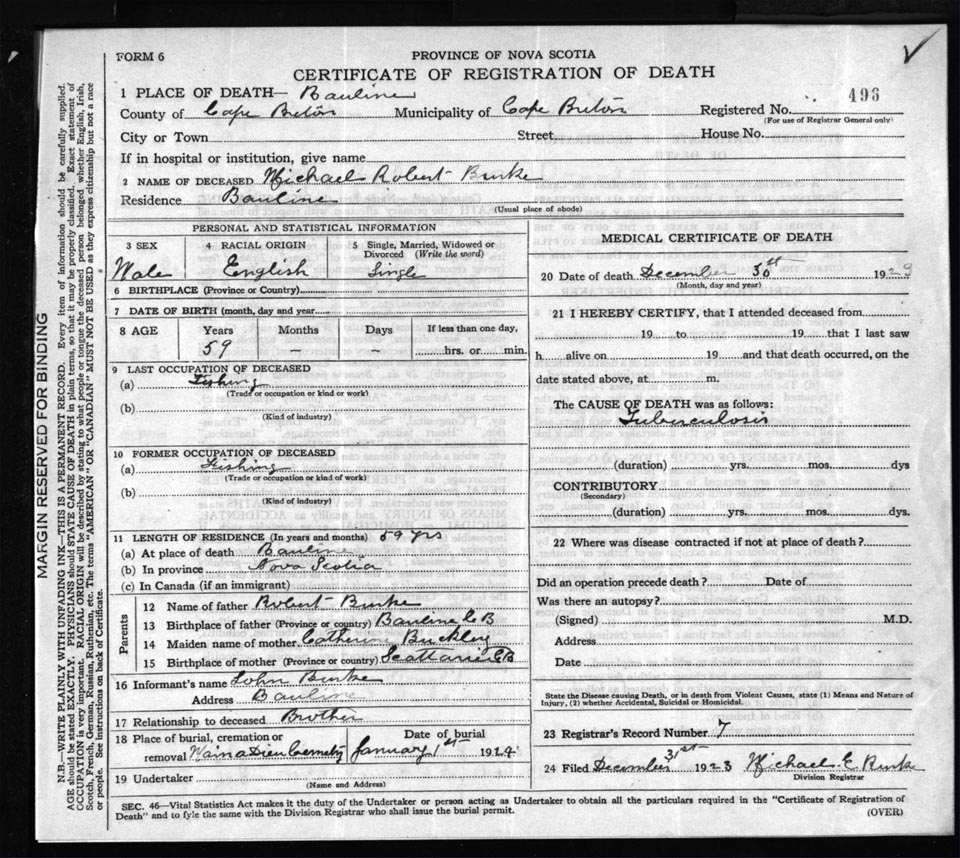 FORM 6
PROVINCE OF NOVA SCOTIA
CERTIFICATE OF REGISTRATION OF DEATH
1 PLACE OF DEATH— Bauline
County of Cape Breton Municipality of Cape Breton Registered No. 496
(For use of Registrar General only)
City or Town Street House No.
If in hospital or institution, give name
2 NAME OF DECEASED Michael Robert Burke
Residence Bauline
(Usual place of abode)
PERSONAL AND STATISTICAL INFORMATION
3 SEX 4 RACIAL ORIGIN 5 Single, Married, Widowed or Divorced (Write the word)
Male English Single
6 BIRTHPLACE (Province or Country)
7 DATE OF BIRTH (month, day and year
8 AGE Years Months Days If less than one day,
59 — — hrs. or min.
9 LAST OCCUPATION OF DECEASED
(a) Fishing
(Trade or occupation or kind or work)
(b)
(Kind of industry)
10 FORMER OCCUPATION OF DECEASED
(a) Fishing
(Trade or occupation or kind of work)
(b)
(Kind of industry)
11 LENGTH OF RESIDENCE (In years and months) 59 yrs
(a) At place of death Bauline
(b) In province Nova Scotia
(c) In Canada (if an immigrant)
Parents
12 Name of father Robert Burke
13 Birthplace of father (Province or country) Bauline C B
14 Maiden name of mother Catherine Buckley
15 Birthplace of mother (Province or country) C B
16 Informant's name John Burke
Address Bauline
17 Relationship to deceased Brother
18 Place of burial, cremation or removal Date of burial
Main a Dieu Cemetery January 1st 1924
19 Undertaker
(Name and Address)
MEDICAL CERTIFICATE OF DEATH
20 Date of death December 30st 192
(Month, day and year)
21 I HEREBY CERTIFY, that I attended deceased from
19 to 19 that I last saw
h alive on 19 and that death occurred, on the
date stated above, at m.
The CAUSE OF DEATH was as follows:
Tuberculosis
(duration) yrs. mos. dys
CONTRIBUTORY
(Secondary)
(duration) yrs. mos. dys.
22 Where was disease contracted if not at place of death?
Did an operation precede death? Date of
Was there an autopsy?
(Signed) M.D.
Address
Date
State the Disease causing Death, or in death from Violent Causes, state (1) Means and Nature of
Injury, (2) whether Accidental, Suicidal or Homicidal.
23 Registrar's Record Number 7
24 Filed December 31st 1923 Michael E Burke
Division Registrar
SEC. 46—Vital Statistics Act makes it the duty of the Undertaker or person acting as Undertaker to obtain all the particulars required in the "Certificate of Registration of
Death" and to fyle the same with the Division Registrar who shall issue the burial permit. (OVER)
MARGIN RESERVED FOR BINDING
N.B.—WRITE PLAINLY WITH UNFADING INK—THIS IS A PERMANENT RECORD. Every item of information should be carefully supplied.
AGE should be stated EXACTLY. PHYSICIANS should STATE CAUSE OF DEATH in plain terms, so that it may be properly classified. Exact statement of
OCCUPATION is very important. RACIAL ORIGIN will be described by stating to what people or tongue the deceased person belonged whether English, Irish,
Scotch, French, German, Russian, Ruthenian, etc. The terms "AMERICAN" OR "CANADIAN" MUST NOT BE USED as they express citizenship but not a race
or people. See instructions on back of Certificate.